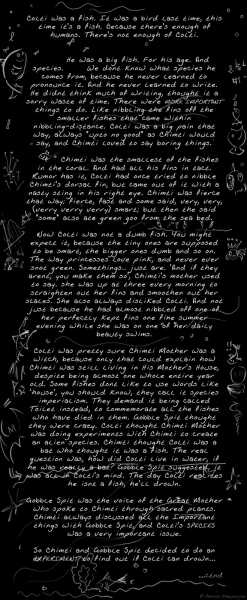 Colti was a fish. It was a bird last time, this
time it's a fish, because there's enough of
humans. There's not enough of Colti.
He was a big fish. For his age. And
species. We dont know what species he
comes from, because he never learned to
pronounce it. And he never learned to write.
He didnt think much of writing, thought it a
sorry waste of time. There were MORE IMPORTANT
things to do. Like nibbling the fins off the
smaller fishes that came within
nibbling-distance. Colti was a big pain that
way, always "upto no good" as Chimti would
say, and Chimti loved to say boring things.
Chimti was the smallest of the fishes
in the coral. And had all his fins in tact.
Rumor has it, Colti had once tried to nibble
Chimti's dorsal fin, but came out of it with a
nasty sting in his right eye. Chimti was fierce
that way, fierce, fast and some said, very, very,
(very very very) smart, but then the said
'some' also ate green goo from the sea bed.
Now Colti was not a dumb fish. You might
expect it, because the tiny ones are supposed
to be smart, the bigger ones dumb and so on.
The way princesses love pink, and never ever
snot green. Somethings.. just are. And if they
arent, you make them so, Chimti's mother used
to say. She was up at three every morning to
straighten out her fins and smoothen out her
scales. She also always disliked Colti. And not
just because he had almost nibbled off one of
her perfectly kept fins one fine summer
evening while she was on one of her daily
beauty swims.
Colti was pretty sure Chimti Mother was a
witch, because only that could explain how
Chimti was still living in His Mother's House,
despite being almost one whole entire year
old. Some fishes dont like to use words like
'house', you should know, they call it species
imperialism. They demand it being called
Toilet instead, to commemorate all the fishes
who have died in them. Gobbce Spie thought
they were crazy. Colti thought Chimti Mother
was doing experiments with Chimti to create
an alien species. Chimti thought Colti was a
bat who thought it was a fish. The real
question was, how did Colti live in water, if
he was really a bat? Gobbce Spie suggested, it
was all in Colti's mind. The day Colti realizes
he isnt a fish, he'll drown.
Gobbce Spie was the voice of the Great Mother
who spoke to Chimti through sacred plants.
Chimti always discussed all the Important
things with Gobbce Spie, and Colti's SPECIES
was a very important issue.
So Chimti and Gobbce Spie decided to do an
EXPERIMENT to find out if Colti can drown...